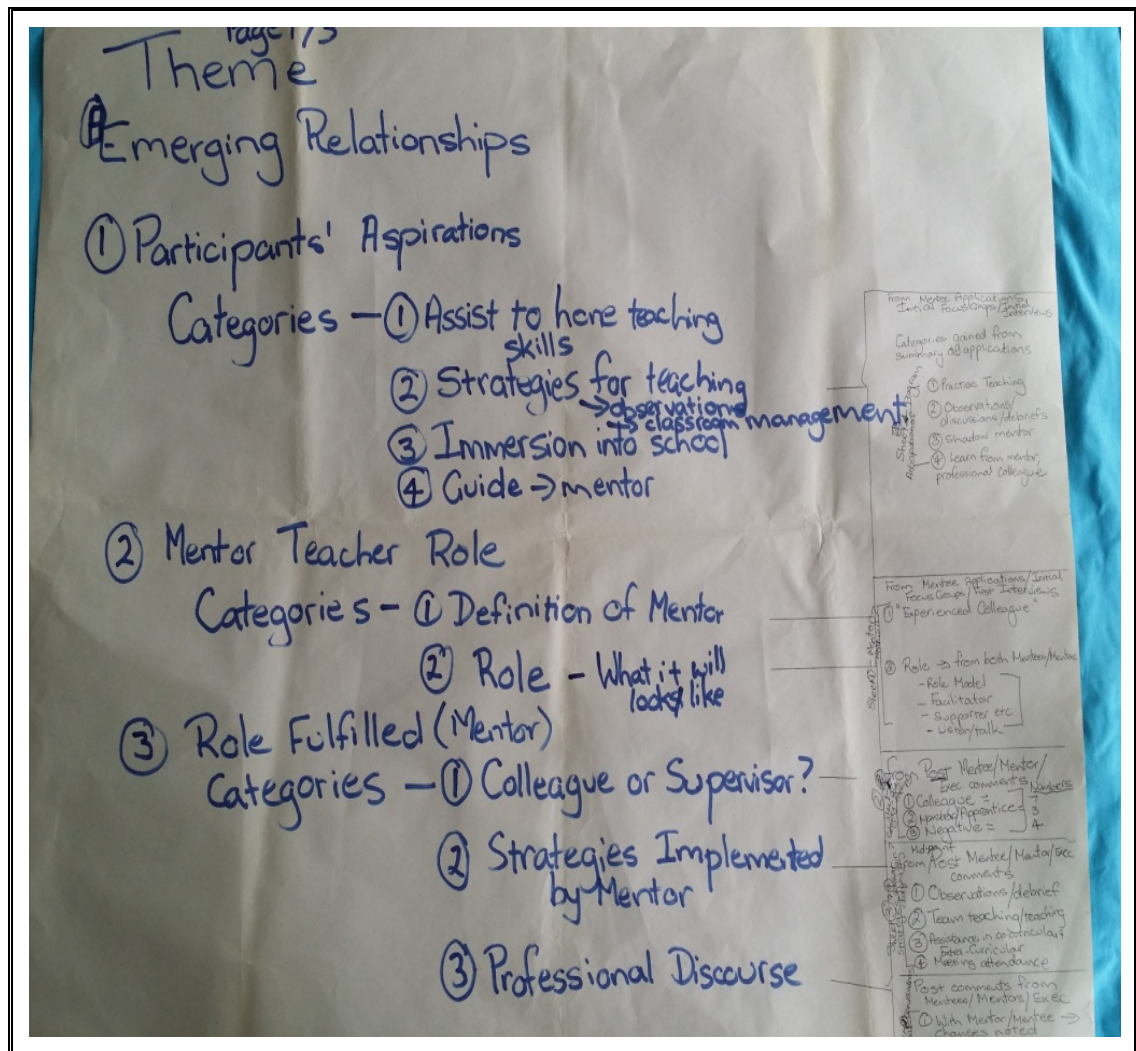 Page 1/3
Theme
A Emerging Relationships
① Participants' Aspirations
Categories — ① Assist to hone teaching
skills
② Strategies for teaching
→ observations
→ classroom management
③ Immersion into school
④ Guide → mentor
② Mentor Teacher Role
Categories – ① Definition of Mentor
② Role – What it will
look like
③ Role Fulfilled (Mentor)
Categories — ① Colleague or Supervisor?
② Strategies Implemented
by Mentor
③ Professional Discourse
From Mentee Applications,
Initial Focus Groups/Initial
Interviews
Categories gained from
summary of applications
① Practice Teaching
② Observations/
discussions/debriefs
③ Shadow mentor
④ Learn from mentor,
professional colleague
From Mentee Applications/Initial
Focus Groups/ Interviews
① "Experienced Colleague"
② Role → from both Mentees/Mentors
- Role Model
- Facilitator
- Supporter etc
- Listen/talk
From Post Mentee/Mentor/
Exec comments
Numbers
① Colleague = 7
② Master/Apprentice = 3
③ Negative = 4
Mid-point
From/Post Mentee/Mentor/Exec
comments
① Observations/debrief
② Team teaching/teaching
③ Assistance in co-curricular/
Extra-Curricular
④ Meeting attendance
Post comments from
Mentees/Mentors/Exec
① With Mentor/Mentee →
changes noted